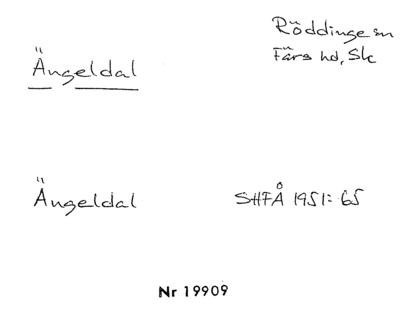 Röddinge sn
Färs hd, Sk
Ängeldal
Ängeldal
SHFÅ 1951: 65
Nr 19909